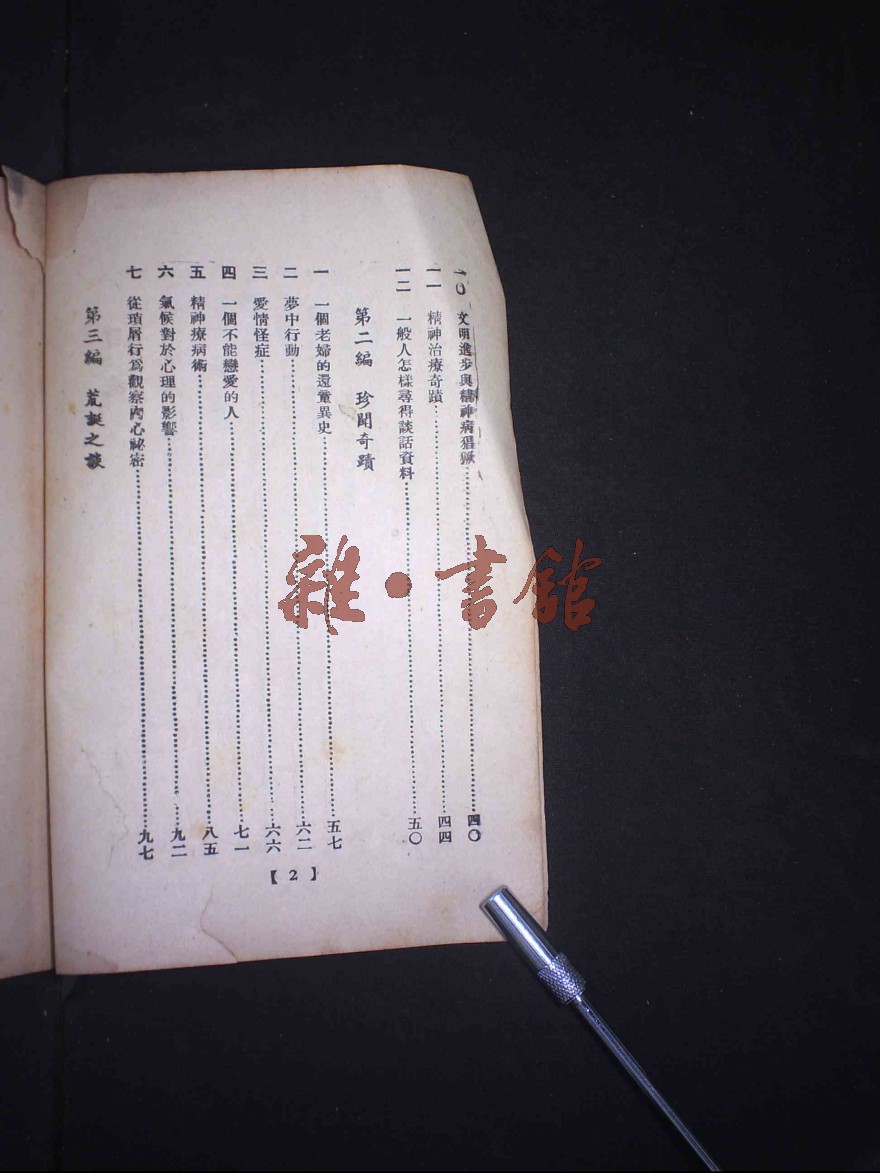 一〇 文明進步與精神病猖獗……四〇
一一 精神治療奇蹟……四四
一二 一般人怎樣尋得談話資料……五〇
第二編 珍聞奇蹟
一 一個老婦的還童異史……五七
二 夢中行動……六二
三 愛情怪症……六六
四 一個不能戀愛的人……七一
五 精神療病術……八五
六 氣候對於心理的影響……九二
七 從瑣屑行爲觀察內心祕密……九七
第三編 荒誕之談
【2】
雜•書館